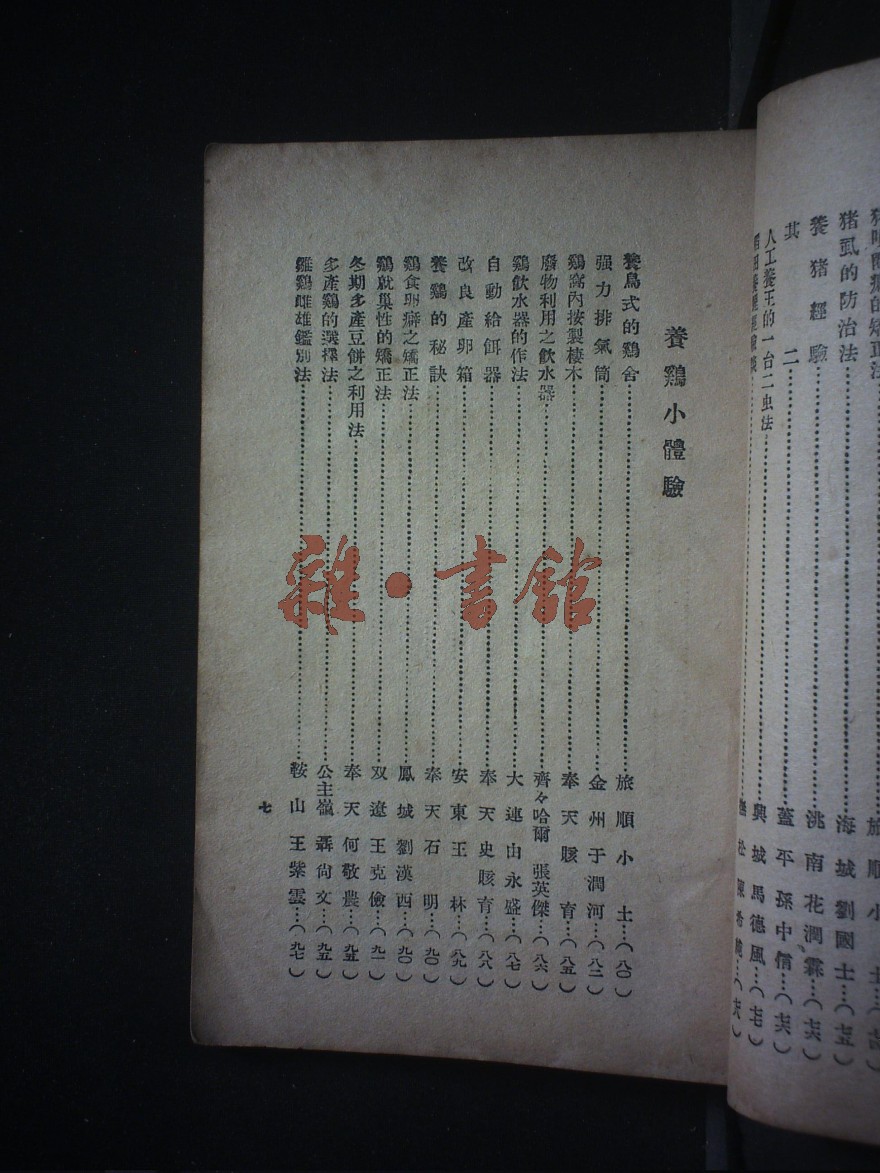 猪虱的防治法……海城劉國士…(七五)
養猪經驗……洮南花潤霖…(七六)
其二……蓋平孫中信…(七六)
人工養王的一台二虫法……興城馬德風…(七七)
養鷄小體驗
養鳥式的鷄舍……旅順小土…(八〇)
强力排氣筒……金州于潤河…(八二)
鷄窩內按製棲木……奉天賅育…(八五)
廢物利用之飲水器……齊々哈爾張英傑…(八六)
鷄飲水器的作法……大連山永盛…(八七)
自動給餌器……奉天史賅育…(八八)
改良產卵箱……安東王林…(八九)
養鷄的秘訣……奉天石明…(九〇)
鷄食卵癖之矯正法……鳳城劉漢西…(九〇)
鷄就巢性的矯正法……双遼王克儉…(九一)
冬期多產豆餅之利用法……奉天何敬農…(九五)
多產鷄的選擇法……公主嶺聶尙文…(九五)
雛鷄雌雄鑑別法……鞍山王紫雲…(九七)
七
雜·書館